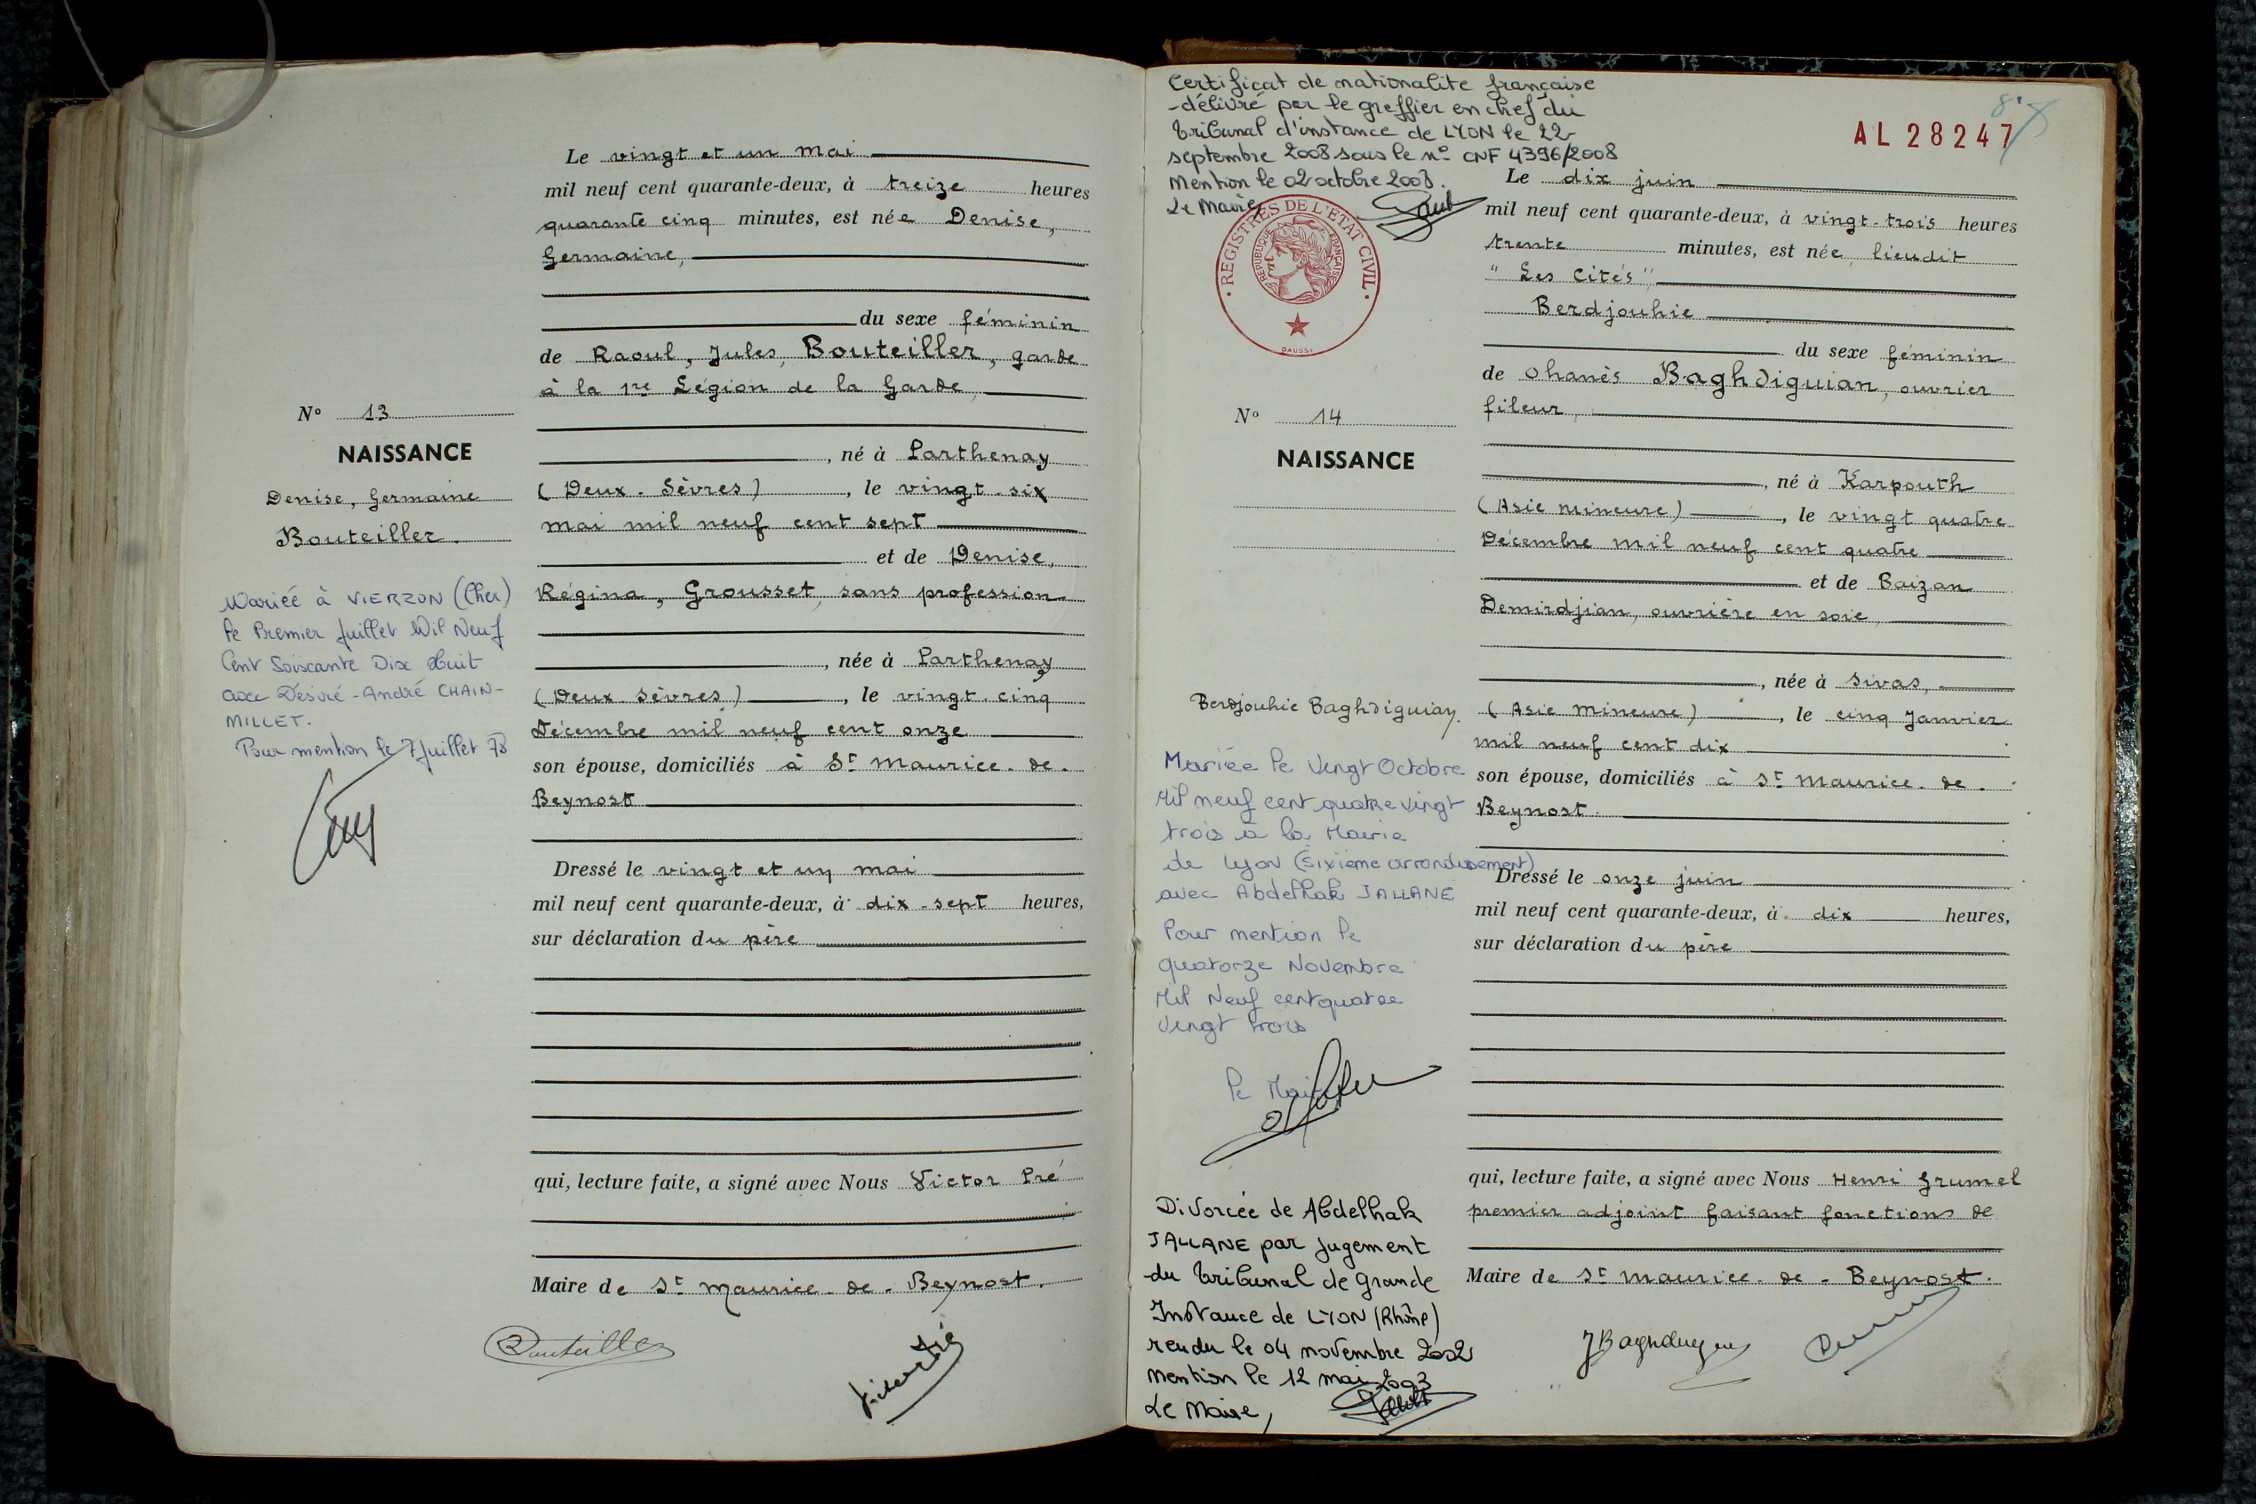 Le vingt et un mai
mil neuf cent quarante-deux, à treize heures
quarante cinq minutes, est née Denise,
Germaine,
du sexe féminin
de Raoul, Jules, Bouteiller, garde
à la 1re Légion de la Garde,
N° 13
NAISSANCE
Denise, Germaine
Bouteiller.
, né à Parthenay
(Deux-Sèvres), le vingt-six
mai mil neuf cent sept
et de Denise,
Régina, Grousset, sans profession
, née à Parthenay
(Deux Sèvres), le vingt-cinq
Décembre mil neuf cent onze
son épouse, domiciliés à St Maurice-de-
Beynost
Mariée à VIERZON (Cher)
le Premier Juillet Mil Neuf
Cent Soixante Dix Huit
avec Désiré-André CHAIN-
MILLET.
Pour mention le 7 Juillet 78
Dressé le vingt et un mai
mil neuf cent quarante-deux, à dix-sept heures,
sur déclaration du père
qui, lecture faite, a signé avec Nous Victor Pré
Maire de St Maurice-de-Beynost.
Bouteiller
Victor Pré
Certificat de nationalité française
-délivré par le greffier en chef du
Tribunal d'instance de LYON le 22
septembre 2008 sous le n° CNF 4396/2008
Mention le 02 octobre 2008.
Le Maire
REGISTRES DE L'ETAT CIVIL
REPUBLIQUE FRANÇAISE
DAUSSI
AL 28247
Le dix juin
mil neuf cent quarante-deux, à vingt-trois heures
trente minutes, est née, lieudit
"Les Cités",
Berdjouhie
du sexe féminin
de Ohanès Baghdiguian, ouvrier
fileur,
N° 14
NAISSANCE
Berdjouhie Baghdiguian.
, né à Karpouth
(Asie mineure), le vingt quatre
Décembre mil neuf cent quatre
et de Baizan
Demirdjian, ouvrière en soie,
, née à Sivas,
(Asie Mineure), le cinq Janvier
mil neuf cent dix
son épouse, domiciliés à St Maurice-de-
Beynost.
Mariée le Vingt Octobre
Mil neuf cent quatre vingt
trois à la Mairie
de Lyon (sixième arrondissement)
avec Abdelhak JALLANE
Pour mention le
quatorze Novembre
Mil Neuf cent quatre
Vingt trois
Le Maire
Dressé le onze juin
mil neuf cent quarante-deux, à dix heures,
sur déclaration du père
qui, lecture faite, a signé avec Nous Henri Grumel
premier adjoint faisant fonctions de
Maire de St Maurice-de-Beynost.
Divorcée de Abdelhak
JALLANE par jugement
du Tribunal de Grande
Instance de LYON (Rhône)
rendu le 04 novembre 2002
mention le 12 mai 2003
Le Maire,